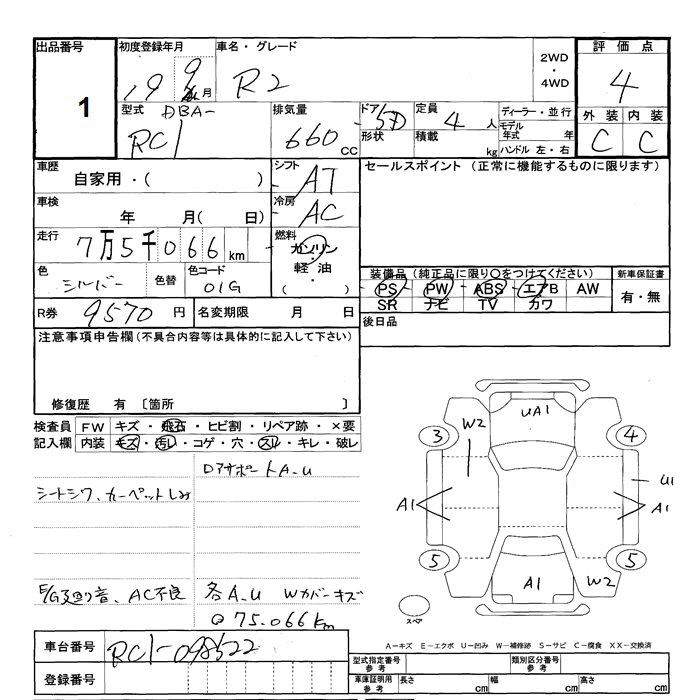 出品番号 初度登録年月 車名・グレード 2WD・4WD 評価点
1 19 9 月 R2 4
型式 DBA- 排気量 ドア 5D 定員 4人 ディーラー・並行 外装 内装
RC1 660cc 形状 積載 kg モデル年式 年 C C
ハンドル 左・右
車歴 シフト セールスポイント (正常に機能するものに限ります)
自家用・( ) AT
車検 冷房
年 月( 日) AC
走行 7万5千066km 燃料
ガソリン
色 シルバー 色替 色コード 01G 軽油・( ) 装備品 (純正品に限り○をつけてください) 新車保証書
PS PW ABS エアB AW 有・無
R券 9570円 名変期限 月 日 SR ナビ TV カワ
後日品
注意事項申告欄(不具合内容等は具体的に記入して下さい)
修復歴 有 〔箇所 〕
検査員 FW キズ・飛石・ヒビ割・リペア跡・×要
記入欄 内装 キズ・汚レ・コゲ・穴・スレ・キレ・破レ
DアサポートA-U
シートシワ、カーペットしみ
E/G廻り音、AC不良 各A-U Wカバーキズ
@75.066km
UA1
W2
3 4
U1
A1 A1
5 5
A1 W2
スペア
A-キズ E-エクボ U-凹み W-補修跡 S-サビ C-腐食 XX-交換済
車台番号 RC1-098522 型式指定番号 参考 類別区分番号 参考
登録番号 車庫証明用 参考 長さ cm 幅 cm 高さ cm